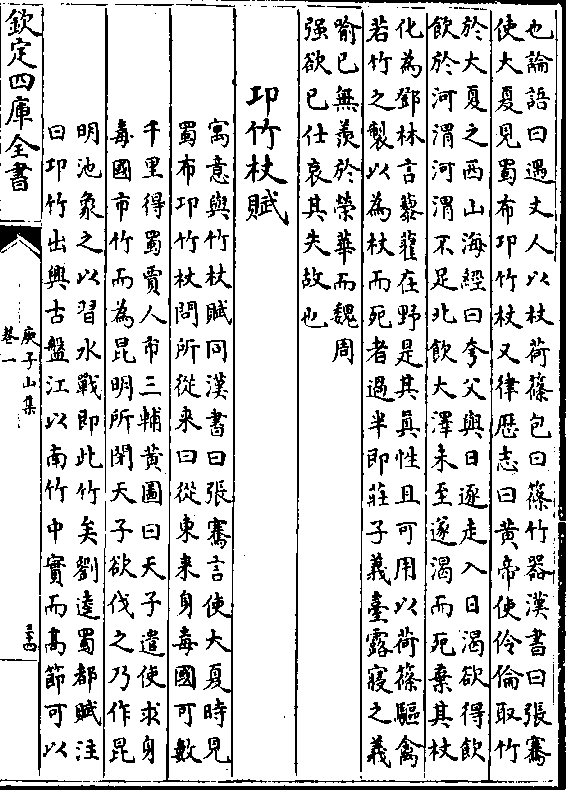 也論語曰遇丈人以杖荷篠包曰篠竹器漢書曰張騫
使大夏見蜀布卭竹杖又律歴志曰黄帝使伶倫取竹
於大夏之西山海經曰夸父與日逐走入日渴欲得飲
飲於河渭河渭不足北飲大澤未至遂渴而死棄其杖
化為鄧林言藜藋在野是其真性且可用以荷篠驅禽
若竹之製以為杖而死者過半即莊子義臺露寢之義
喻已無羨於榮華而魏周
强欲已仕哀其失故也
卭竹杖賦
寓意與竹杖賦同漢書曰張騫言使大夏時見
蜀布卭竹杖問所從来曰從東来身毒國可數
千里得蜀賈人市三輔黄圖曰天子遣使求身
毒國市竹而為昆明所閉天子欲伐之乃作昆
明池象之以習水戰即此竹矣劉逵蜀都賦注
曰卭竹出興古盤江以南竹中實而髙節可以
欽定四庫全書
庾子山集
卷一
三四